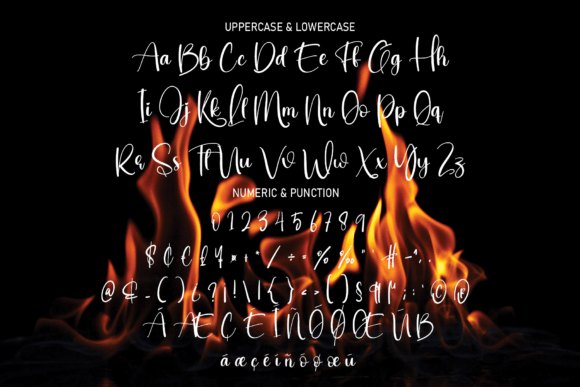 UPPERCASE & LOWERCASE
Aa Bb Cc Dd Ee Ff Gg Hh
Ii Jj Kk Ll Mm Nn Oo Pp Qq
Rr Ss Tt Uu Vv Ww Xx Yy Zz
NUMERIC & PUNCTION
0 1 2 3 4 5 6 7 8 9
$ ₵ € £ ¥ ¤ + * / ÷ = % ‰ " ' # - ^ . ,
@ & _ ( ) ¿ ? ¡ ! \ | { } < > [ ] § ¶ ; : ' © ®
Á Æ Ç É Í Ñ Ó Ø Œ Ú ß
á æ ç é í ñ ó ø œ ú